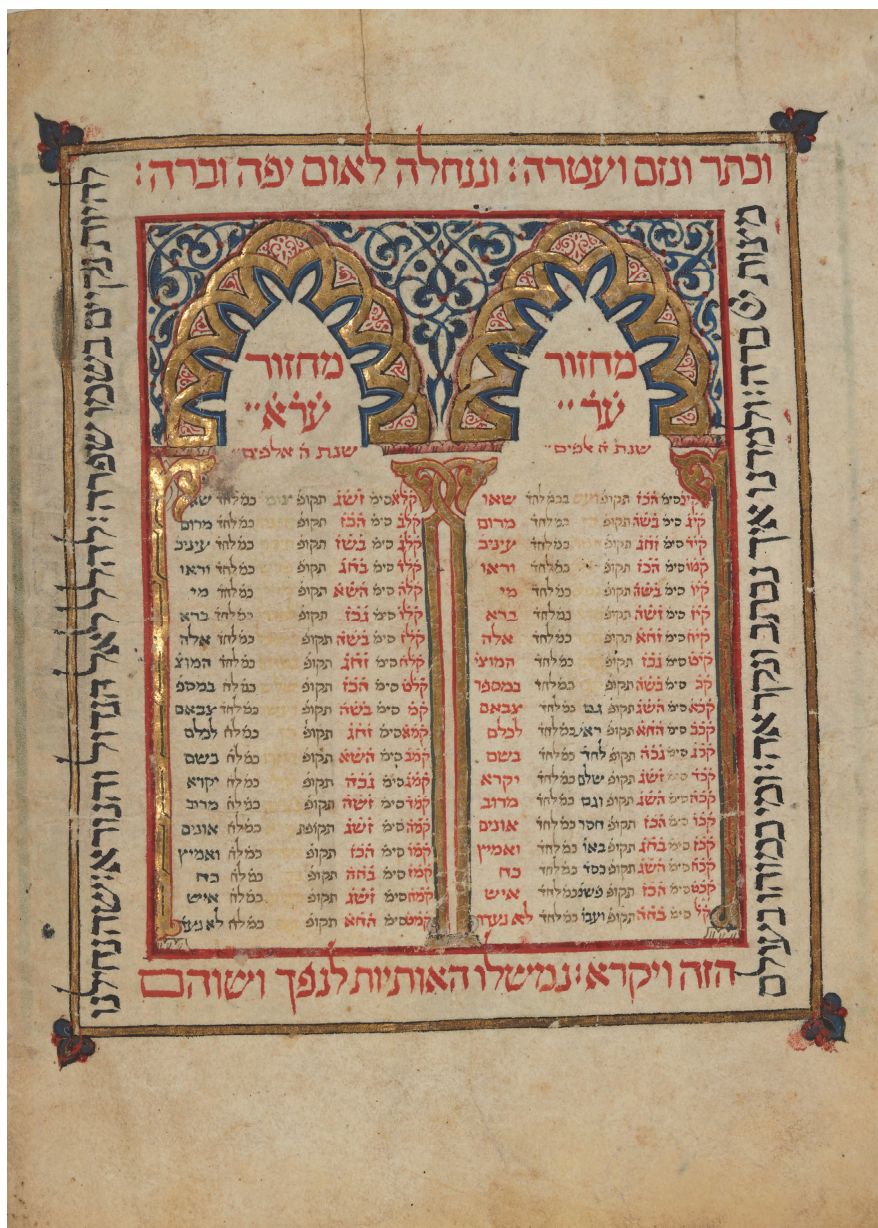 וכתר ונזם ועטרה: וננחלה לאום יפה וברה:
ברה: ולמדנו איך נכתב ונקראה: ומי כמוהו בעולם
הזה ויקרא: נמשלו האותיות לנפך ושוהם
להיות נקיים בשמו שפרה: להלל לאל הגדול והנורא: שהנחלנו
מחזור
ער
שנת ה אלפים
סימ הכז תקופ במלחד שאו
קיג סימ בשה תקופ כמלחד מרום
קיד סימ זחג תקופ כמלחד עיניכ
קטו סימ הכז תקופ כמלחד וראו
קיו סימ בשה תקופ כמלחד מי
קיז סימ זשה תקופ כמלחד ברא
קיח סימ זחא תקופ כמלחד אלה
קיט סימ גכז תקופ כמלחד המוצי
קכ סימ בשה תקופ כמלחד במספר
קכא סימ השג תקופ גם כמלחד צבאם
קכב סימ החא תקופ ראי כמלחד לכלם
קכג סימ גכה תקופ לחד כמלחד בשם
קכד סימ זשג תקופ שלם כמלחד יקרא
קכה סימ השג תקופ וגם כמלחד מרוב
קכו סימ הכז תקופ חסר כמלחד אונים
קכז סימ בחג תקופ באו כמלחד ואמיץ
קכח סימ השג תקופ כסד כמלחד כח
קכט סימ הכז תקופ כמלחד איש
קל סימ בחה תקופ כמלחד לא נעדר
מחזור
ערא
שנת ה אלפים
קלא סימ זשג תקופ כמלחד שאו
קלב סימ הכז תקופ כמלחד מרום
קלג סימ בשז תקופ כמלחד עיניכ
קלד סימ בחג תקופ כמלחד וראו
קלה סימ השא תקופ כמלחד מי
קלו סימ גכז תקופ כמלחד ברא
קלז סימ בשה תקופ כמלחד אלה
קלח סימ זחג תקופ כמלחד המוצי
קלט סימ הכז תקופ כמלח במספ
קמ סימ בשה תקופ כמלחד צבאם
קמא סימ זחג תקופ כמלח לכלם
קמב סימ השא תקופ כמלח בשם
קמג סימ גכה תקופ כמלח יקרא
קמד סימ זשה תקופ כמלח מרוב
קמה סימ זשג תקופת כמלח אונים
קמו סימ הכז תקופ כמלח ואמיץ
קמז סימ בחה תקופ כמלח כח
קמח סימ זשג תקופ כמלח איש
קמט סימ החא תקופ כמלח לא נעדר